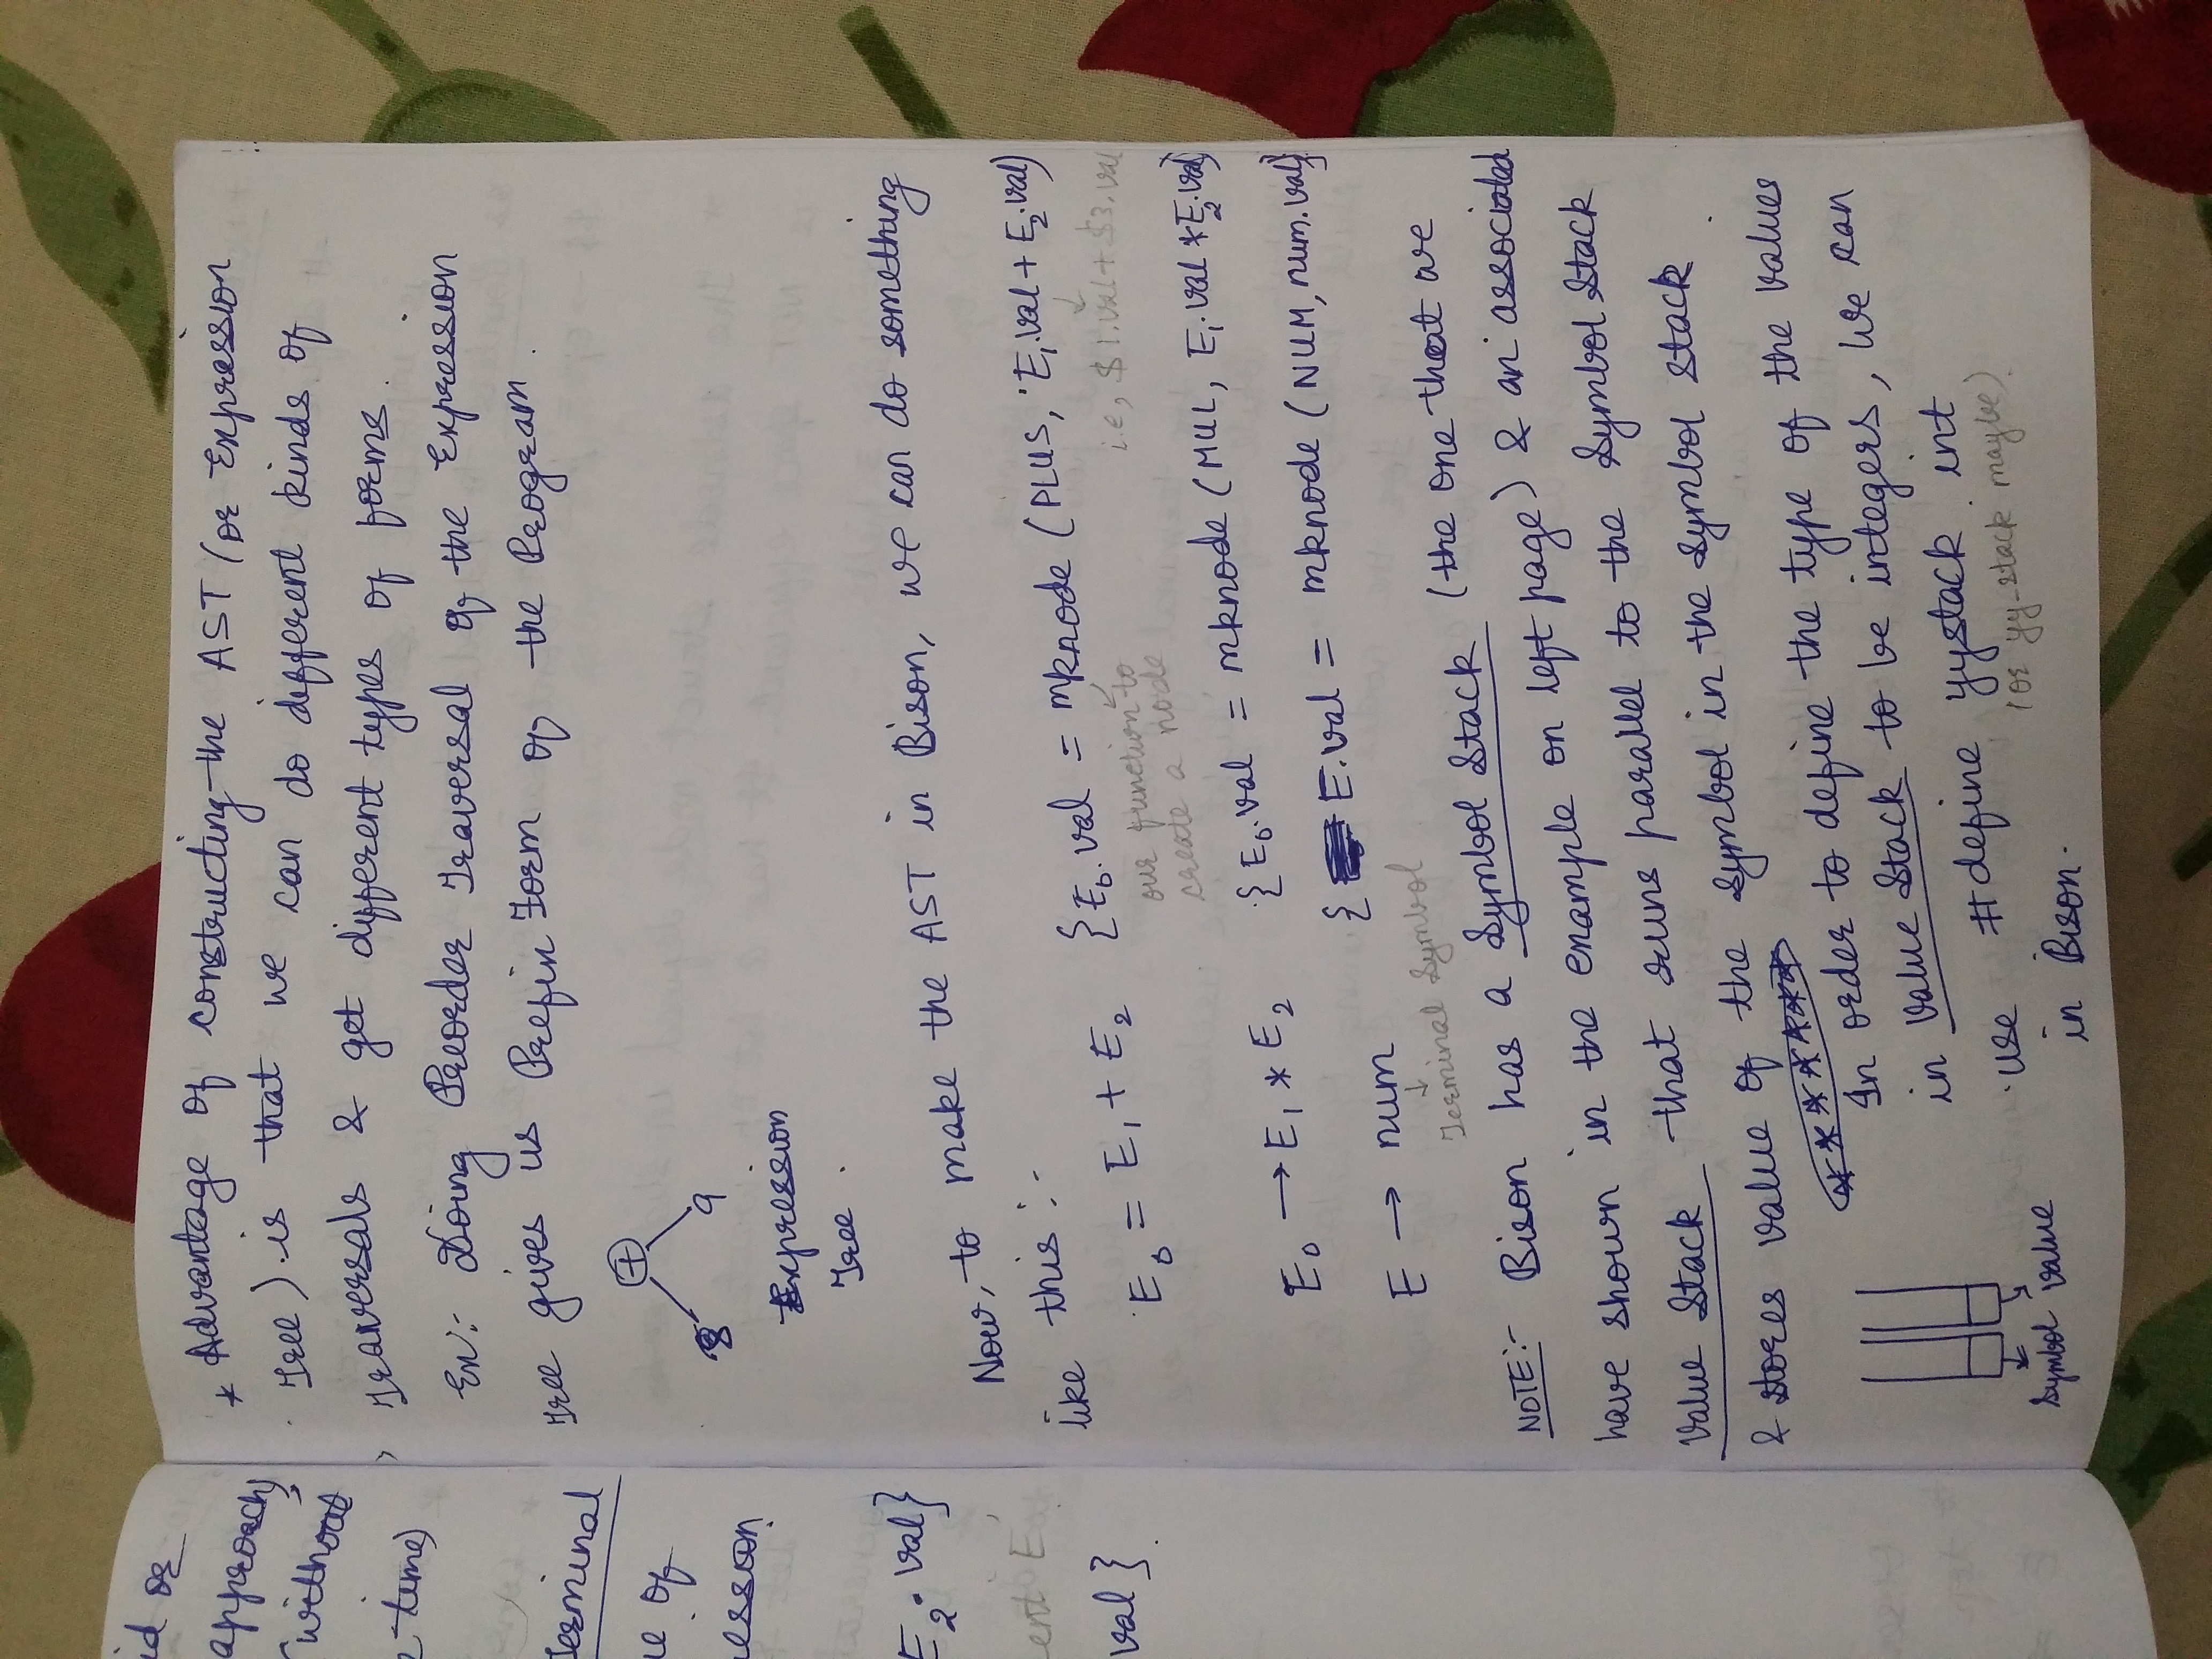 * Advantage of constructing the AST (or Expression
Tree) is that we can do different kinds of
Traversals & get different types of forms.
Ex:- Doing Preorder Traversal of the Expression
Tree gives us Prefix Form of the Program
+
8 9
Expression
Tree
Now, to make the AST in Bison, we can do something
like this :-
E₀ = E₁ + E₂ {E₀.val = mknode (PLUS, E₁.val + E₂.val)
our function to
create a node
i.e., $1.val + $3.val
E₀ → E₁ * E₂ {E₀.val = mknode (MUL, E₁.val * E₂.val)}
E → num { E.val = mknode (NUM, num.val)}
Terminal Symbol
NOTE:- Bison has a symbol stack (the one that we
have shown in the example on left page) & an associated
value stack that runs parallel to the symbol stack
& stores value of the symbol in the symbol stack
In order to define the type of the values
in value stack to be integers, we can
use #define yystack int
(or yy-stack maybe)
in Bison.
Symbol Value
id or
approach)
(without
e time)
Terminal
e of
ession
E₂.val}
ent E
val}